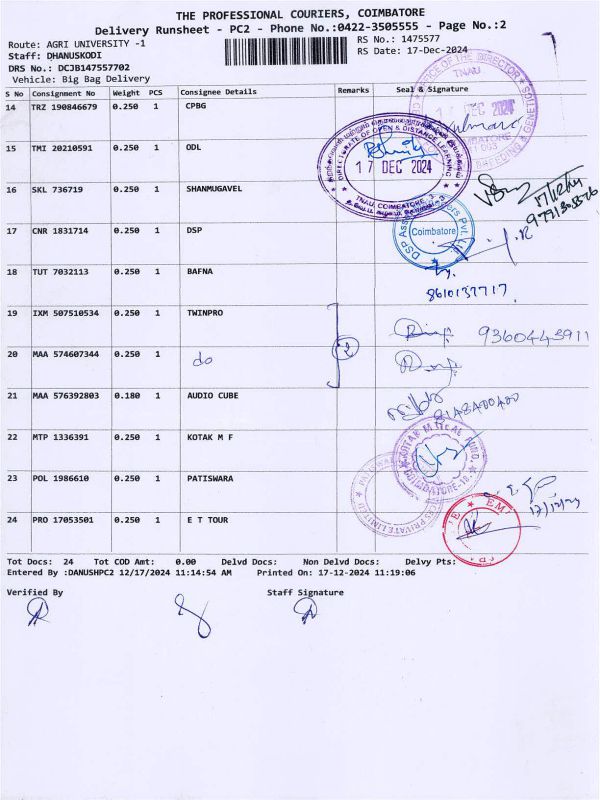 THE PROFESSIONAL COURIERS, COIMBATORE
Delivery Runsheet - PC2 - Phone No.:0422-3505555 - Page No.:2
Route: AGRI UNIVERSITY -1
RS No.: 1475577
Staff: DHANUSKODI
RS Date: 17-Dec-2024
DRS No.: DCJB147557702
Vehicle: Big Bag Delivery
S No Consignment No Weight PCS Consignee Details Remarks Seal & Signature
14 TRZ 190846679 0.250 1 CPBG
15 TMI 20210591 0.250 1 ODL
16 SKL 736719 0.250 1 SHANMUGAVEL
17 CNR 1831714 0.250 1 DSP
18 TUT 7032113 0.250 1 BAFNA
19 IXM 507510534 0.250 1 TWINPRO
20 MAA 574607344 0.250 1 do
21 MAA 576392803 0.180 1 AUDIO CUBE
22 MTP 1336391 0.250 1 KOTAK M F
23 POL 1986610 0.250 1 PATISWARA
24 PRO 17053501 0.250 1 E T TOUR
OFFICE OF THE DIRECTOR
TNAU
DEC 2024
BREEDING & GENE
DIRECTORATE OF OPEN & DISTANCE LEARNING
17 DEC 2024
TNAU, COIMBATORE-3
17/12/24
DSP
Pvt. Lt
Coimbatore
8610137717
2
9360443911
KOTAK M
FUND
COIMBATORE-18
PATISWA
PRIVATE LIMI
17/12/24
EM
Tot Docs: 24 Tot COD Amt: 0.00 Delvd Docs: Non Delvd Docs: Delvy Pts:
Entered By :DANUSHPC2 12/17/2024 11:14:54 AM Printed On: 17-12-2024 11:19:06
Verified By Staff Signature